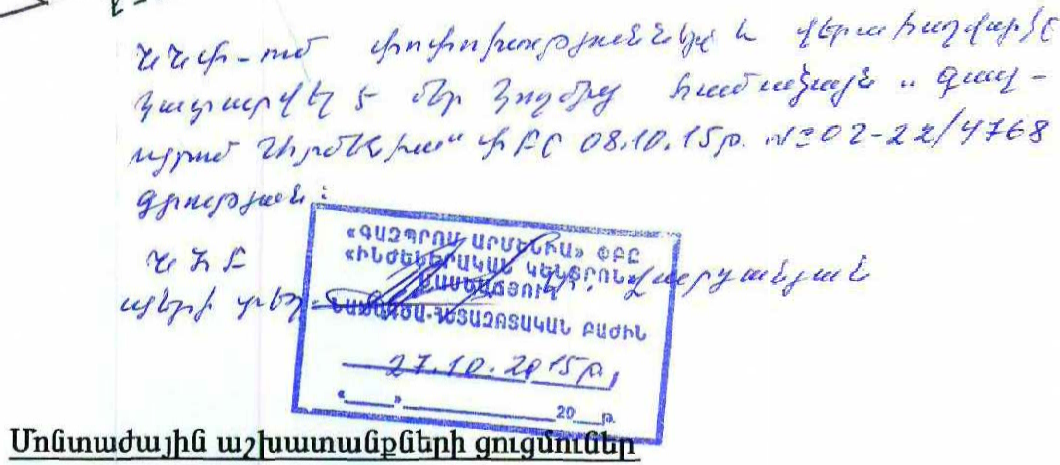 ՆՆՓ-ում փոփոխությունները և վերահաշվարկը
կատարվել է մեր կողմից համաձայն „Գազ-
պրոմ Արմենիա" ՓԲԸ 08.10.15թ. №02-22/4768
գրության:
«ԳԱԶՊՐՈՄ ԱՐՄԵՆԻԱ» ՓԲԸ
«ԻՆԺԵՆԵՐԱԿԱՆ ԿԵՆՏՐՈՆ»
ՄԱՍՆԱՃՅՈՒՂ
ՆՀԲ
պետի տեղ. Վարդանյան
ՆԱԽԱԳԾԱ-ՀԵՏԱԶՈՏԱԿԱՆ ԲԱԺԻՆ
27.10.2015թ.
«____»____________20___թ.
Մոնտաժային աշխատանքների ցուցմունքներ